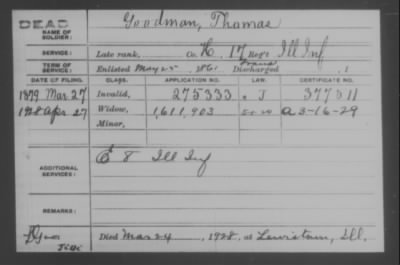 DEAD
NAME OF SOLDIER: Goodman, Thomas
SERVICE: Late rank, Co. H, 17 Reg't Ill Inf
TERM OF SERVICE: Enlisted May 25, 1861 Discharged , 1
DATE OF FILING. CLASS. APPLICATION NO. LAW. CERTIFICATE NO.
1879 Mar 27 Invalid, 275333 J 377511
1928 Apr 27 Widow, 1,611,903 A 3-16-29
Minor,
ADDITIONAL SERVICES: 8 Ill Inf
REMARKS:
Died Mar 24, 1928, at Lewistown, Ill.